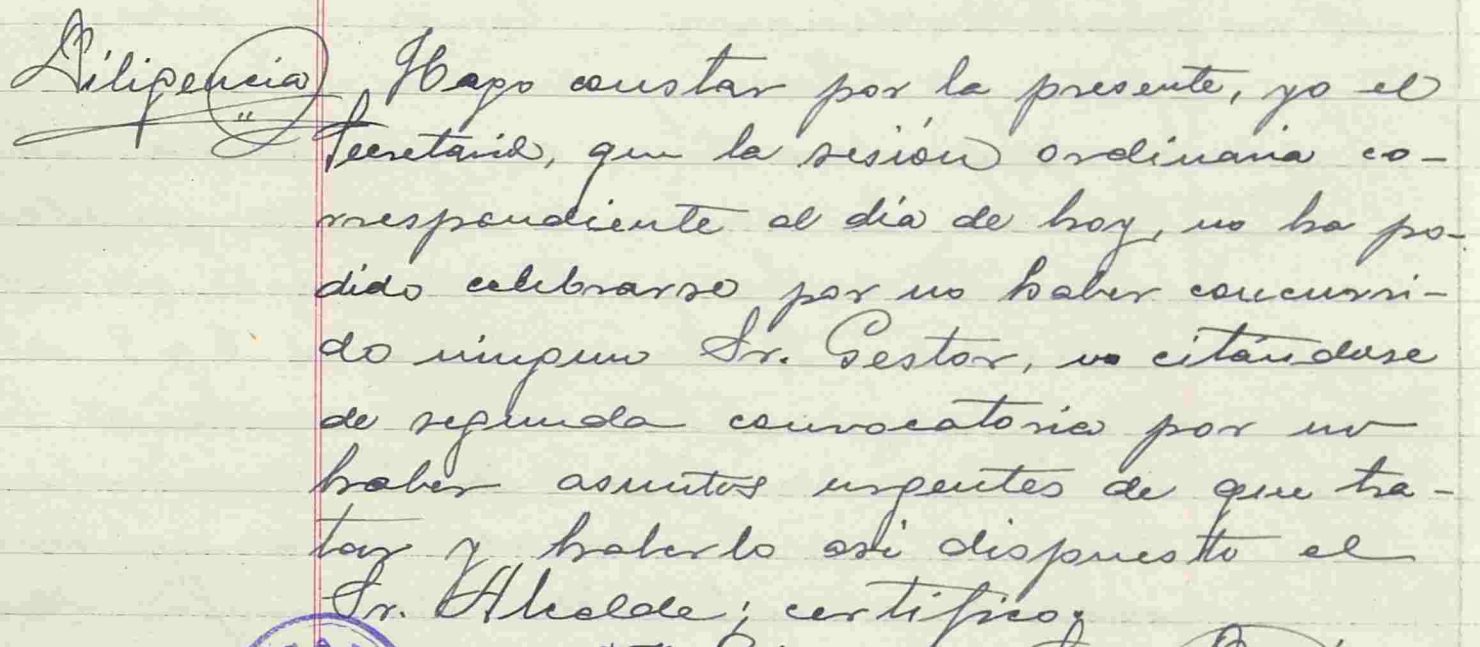 Diligencia Hago constar por la presente, yo el
Secretario, que la sesión ordinaria co-
rrespondiente al día de hoy, no ha po-
dido celebrarse por no haber concurri-
do ningun Sr. Gestor, no citándose
de segunda convocatoria por no
haber asuntos urgentes de que tra-
tar y haberlo asi dispuesto el
Sr. Alcalde; certifico;